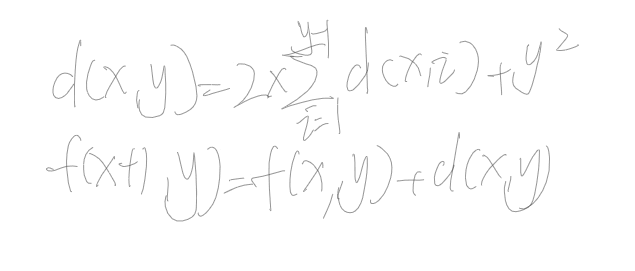 d(x,y)=2x∑_{i=1}^{y-1} d(x,i)+y²
f(x+1,y)=f(x,y)+d(x,y)